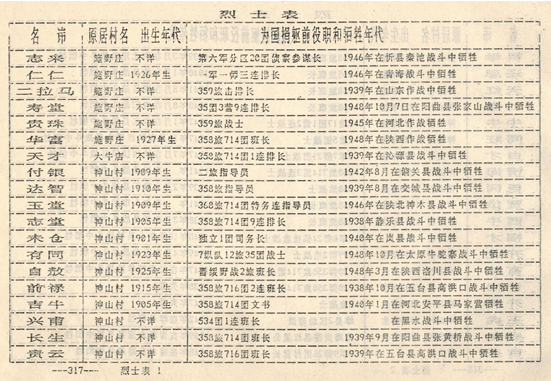 烈士表
名 讳 原居村名 出生年代 为国捐躯前役职和牺牲年代
志来 施野庄 不详 第六军分区20团侦察参谋长 1946年在忻县秦池战斗中牺牲
仁仁 施野庄 1926年生 一军一师三连排长 1946年在青海战斗中牺牲
二拉马 施野庄 不详 359旅击排长 1939年在山东作战中牺牲
寿堂 施野庄 不详 35团3营9连排长 1948年10月7日在阳曲县张家山战斗中牺牲
贵珠 施野庄 不详 359旅战士 1945年在河北作战牺牲
华富 施野庄 1927年生 358旅714团班长 1948年在陕西作战牺牲
天才 大牛店 不详 358旅714团1连排长 1939年在沁源县战斗中牺牲
付银 神山村 1909年生 二旅指导员 1942年8月在偏关县战斗中牺牲
达智 神山村 1910年生 358旅指导员 1939年8月在交城县战斗中牺牲
玉堂 神山村 1909年生 368旅714团特务连指导员 1946年在陕北神木县战斗中牺牲
志堂 神山村 1905年生 358旅714团9连排长 1938年静乐县战斗中牺牲
米仓 神山村 1901年生 独立1团司务长 1940年在岚县战斗中牺牲
有同 神山村 1923年生 7纵队12旅35团战士 1948年10月在太原牛驼寨战斗中牺牲
自敖 神山村 1925年生 晋绥野战2旅班长 1948年3月在陕西洛川县战斗中牺牲
前禄 神山村 1915年生 358旅716团2连班长 1938年10月在五台县高洪口战斗中牺牲
吉牛 神山村 1905年生 358旅714团文书 1940年1月在河北安平县马家营牺牲
兴甫 神山村 不详 534团1连班长 在黑水战斗中牺牲
长生 神山村 不详 358旅714团班长 1939年9月在阳曲县张黄桥战斗中牺牲
贵云 神山村 不详 358旅716团班长 1939年在五台县高洪口战斗中牺牲
---317---
烈士表 1